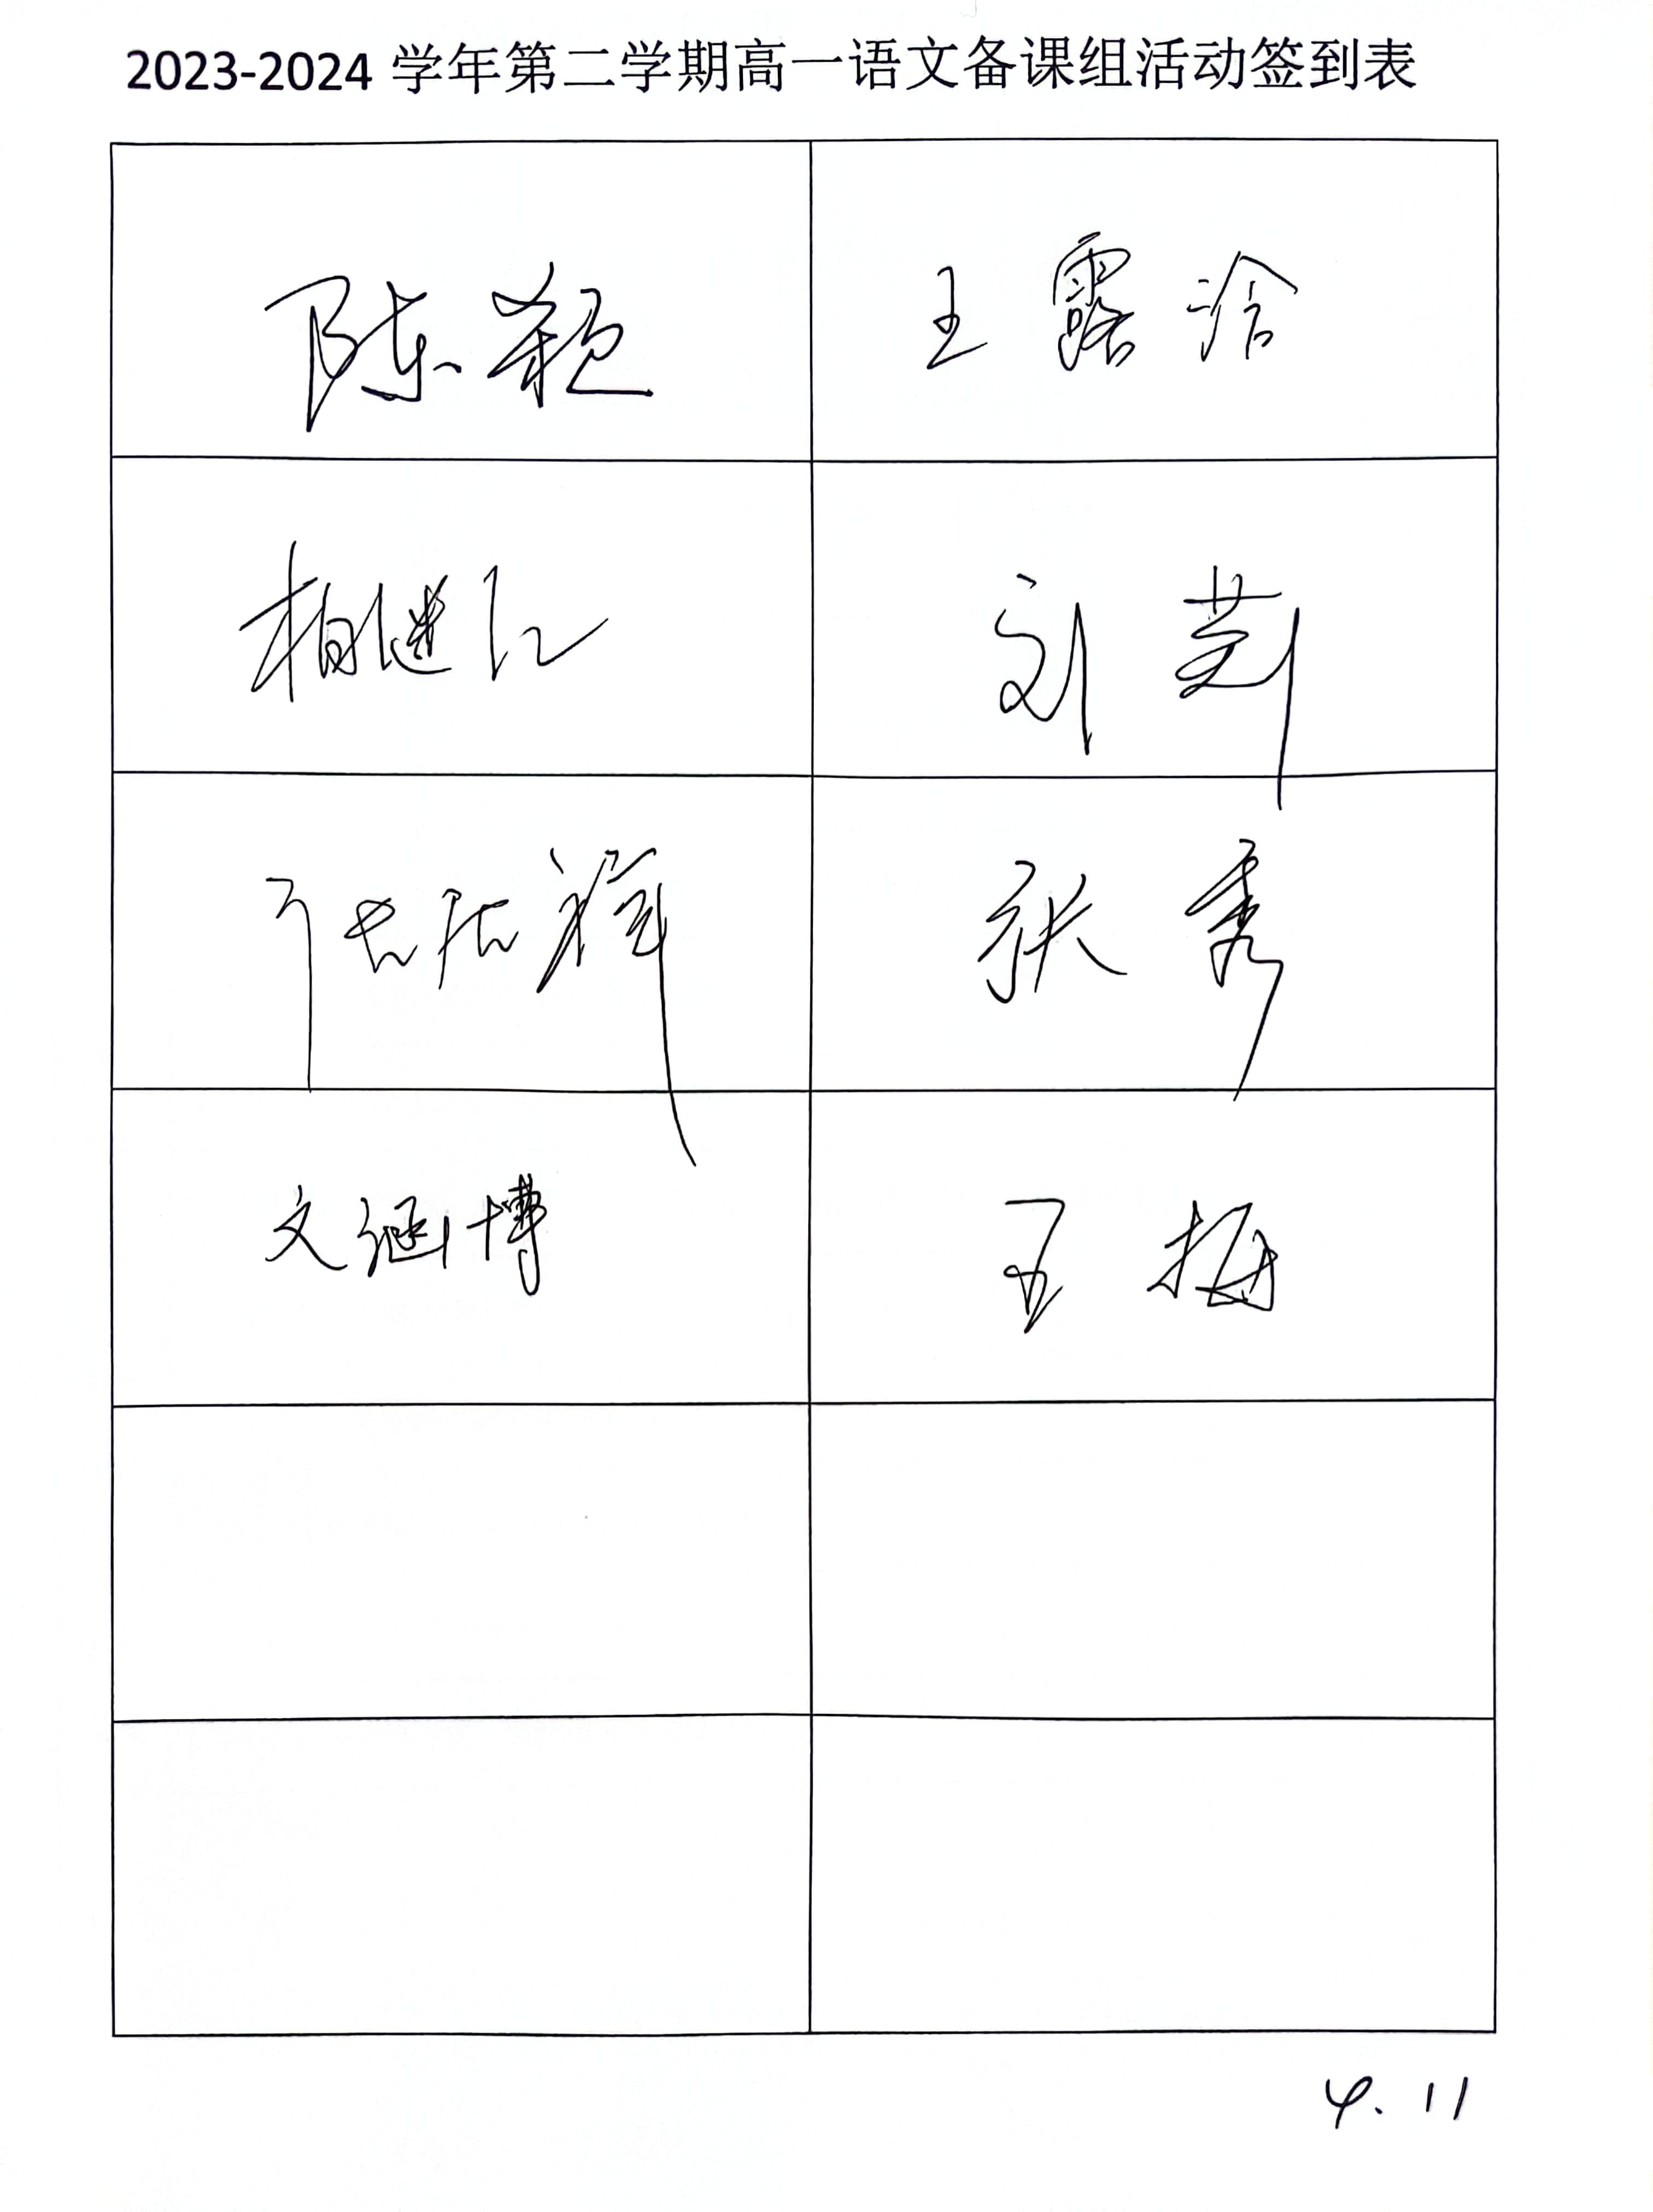 2023-2024 学年第二学期高一语文备课组活动签到表
陈颖 王露洽
刘莉
张秀
文涵博 王梅
4.11